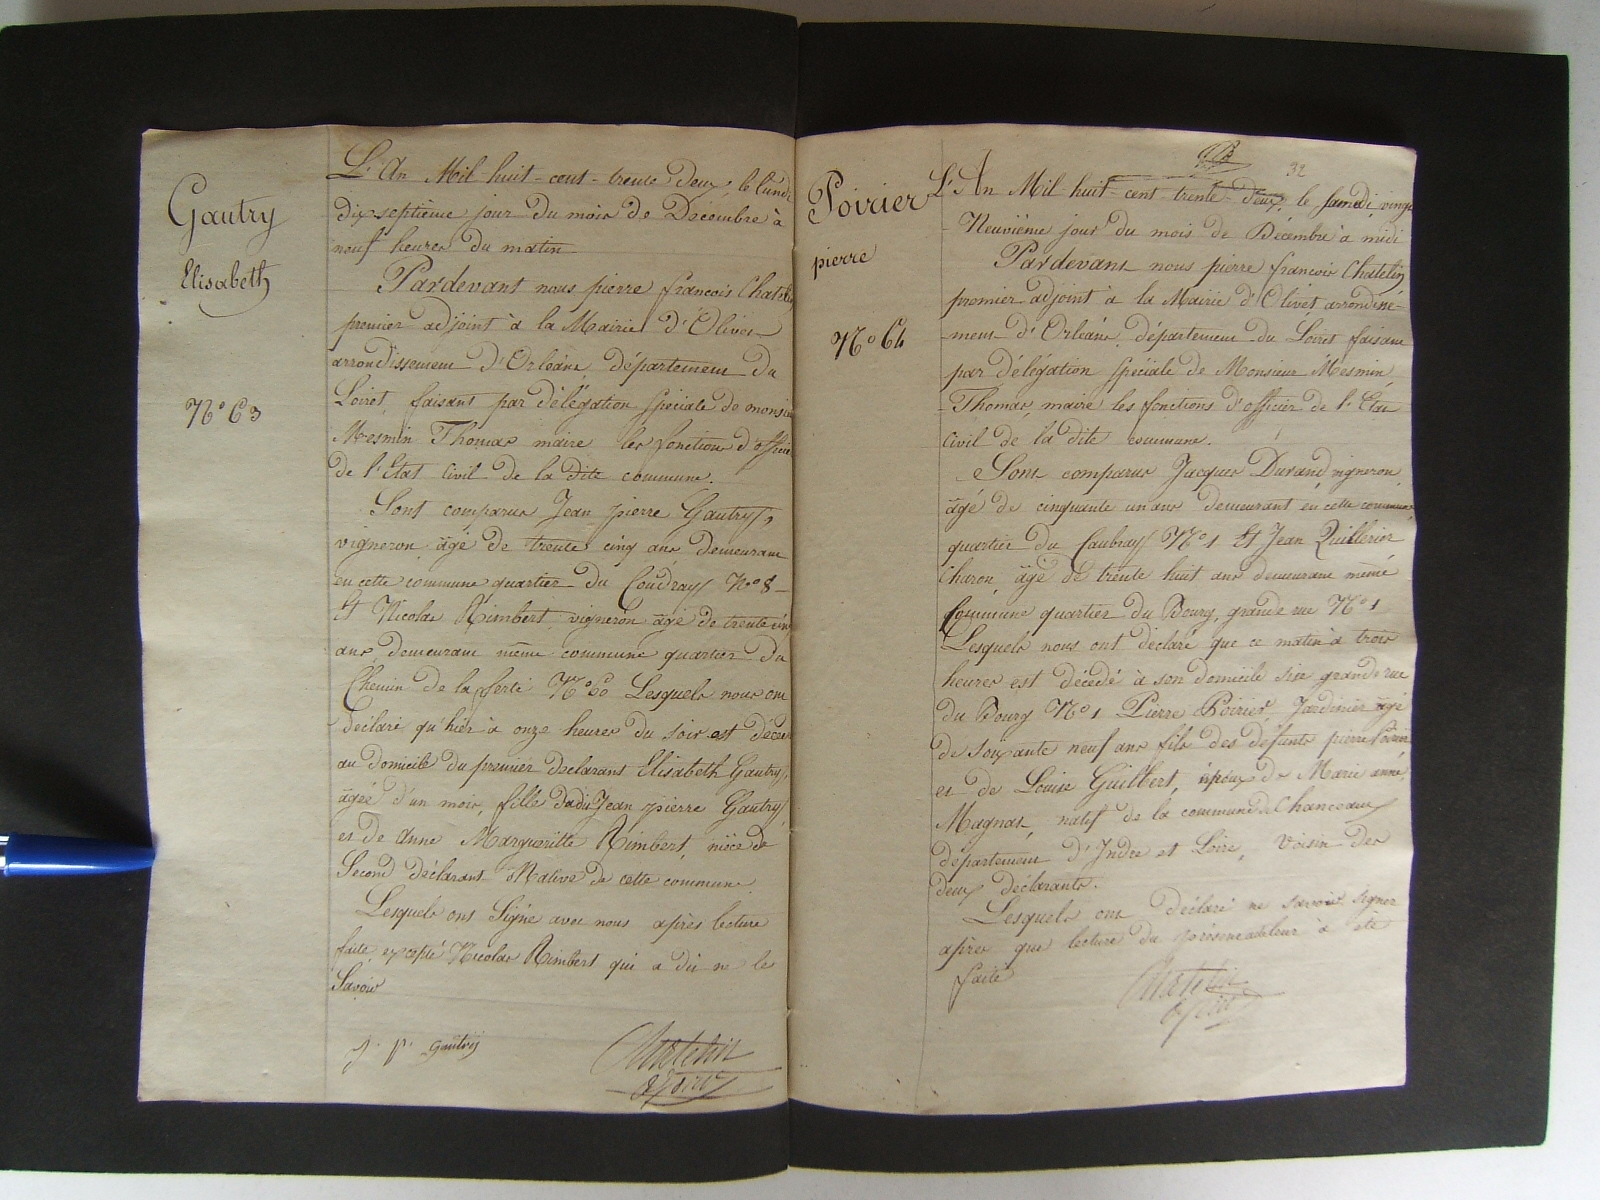 Gautry
Elisabeth
N° 63
L'An Mil huit-cent-trente deux, le lundi
dix septieme jour du mois de Décembre à
neuf heures du matin
Pardevant nous pierre francois Chatelin
premier adjoint à la Mairie d'Olivet
arrondissement d'Orléans, département du
Loiret, faisant par délégation spéciale de monsieur
Mesmin Thomas maire les fonctions d'officier
de l'Etat Civil de la dite commune.
Sont comparus Jean pierre Gautry,
vigneron, âgé de trente cinq ans demeurant
en cette commune quartier du Coudray N° 8
Et Nicolas Rimbert, vigneron âgé de trente un
ans demeurant même commune quartier du
Chemin de la ferté N° 60 Lesquels nous ont
déclaré qu'hier à onze heures du soir est décédée
au domicile du premier déclarant Elisabeth Gautry,
âgée d'un mois, fille dudit Jean pierre Gautry
et de Anne Margueritte Rimbert, nièce de
Second déclarant Native de cette commune.
Lesquels ont Signé avec nous après lecture
faite, excepté Nicolas Rimbert qui a dit ne le
Savoir
J. P. Gautry
Chatelin
adjoint
32
Poirier
pierre
N° 64
L'An Mil huit-cent trente-deux, le samedi vingt
Neuvième jour du mois de Décembre à midi
Pardevant nous pierre francois Chatelin
premier adjoint à la Mairie d'Olivet arrondisse-
ment d'Orléans, département du Loiret faisant
par délégation spéciale de Monsieur Mesmin
Thomas, maire les fonctions d'officier de l'Etat
Civil de la dite commune.
Sont comparus Jacques Durand, vigneron,
âgé de cinquante un ans demeurant en cette commune,
quartier du Caubray N° 1 Et Jean Quillerier
Charon, âgé de trente huit ans demeurant même
Commune quartier du Bourg, grande rue N° 1
Lesquels nous ont déclaré que ce matin à trois
heures est décédé à son domicile sise grande rue
du Bourg N° 1 Pierre Poirier, Jardinier âgé
de soixante neuf ans fils des défunts pierre Poirier
et de Louise Guilbert, époux de Marie anne
Magnas, natif de la commune de Chanceaux
département d'Indre et Loire, Voisin des
deux déclarants.
Lesquels ont déclaré ne savoir signer
après que lecture du présent acte leur à été
faite
Chatelin
adjoint